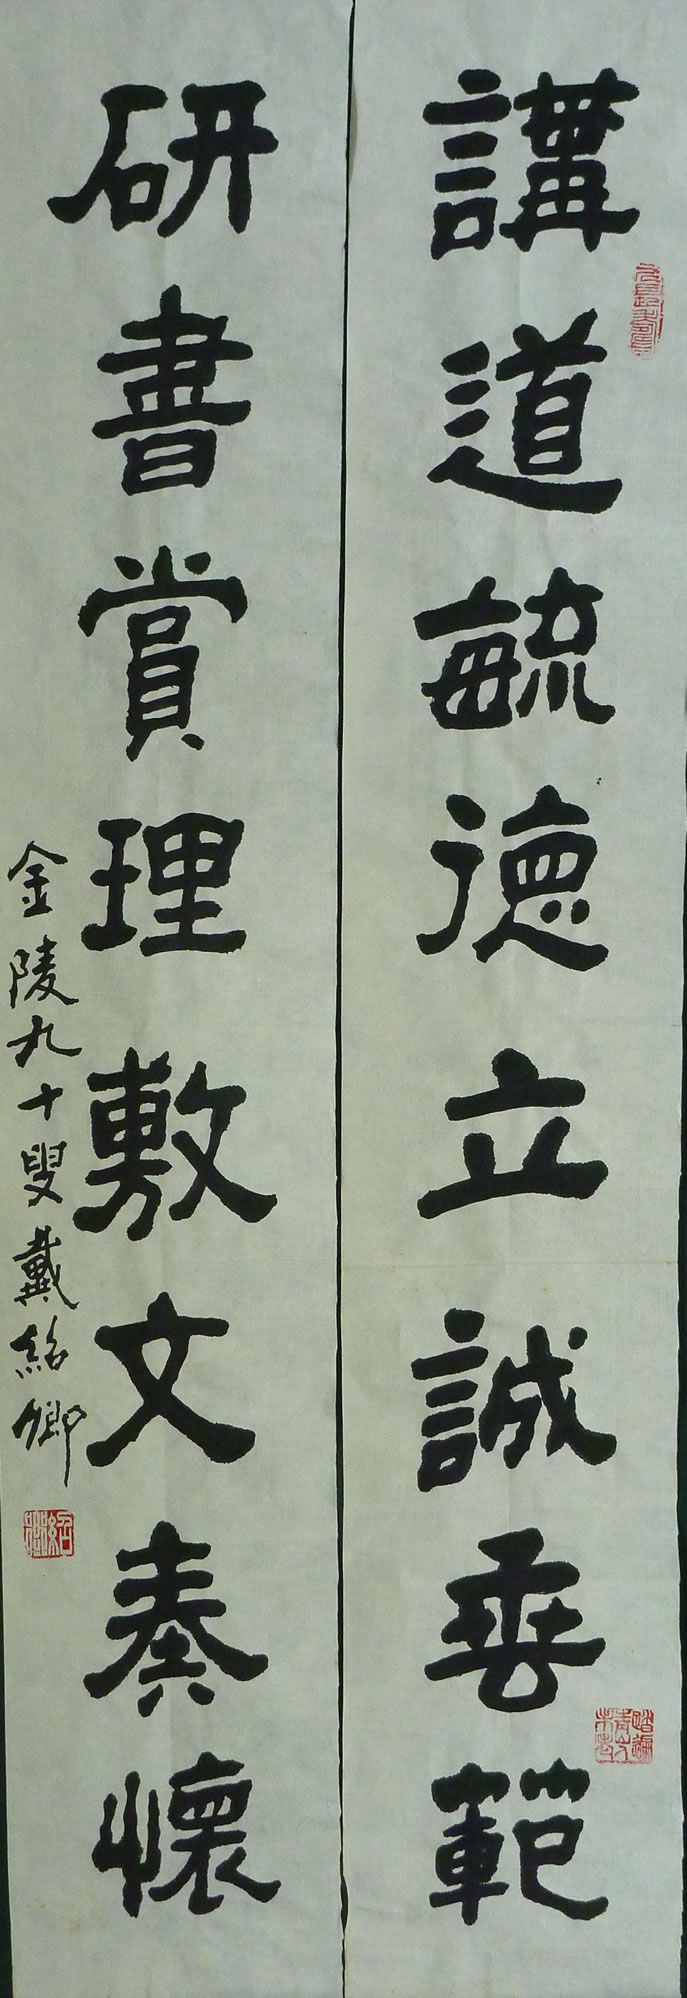 講道毓德立誠垂範
研書賞理敷文奏懷
金陵九十叟戴紹卿